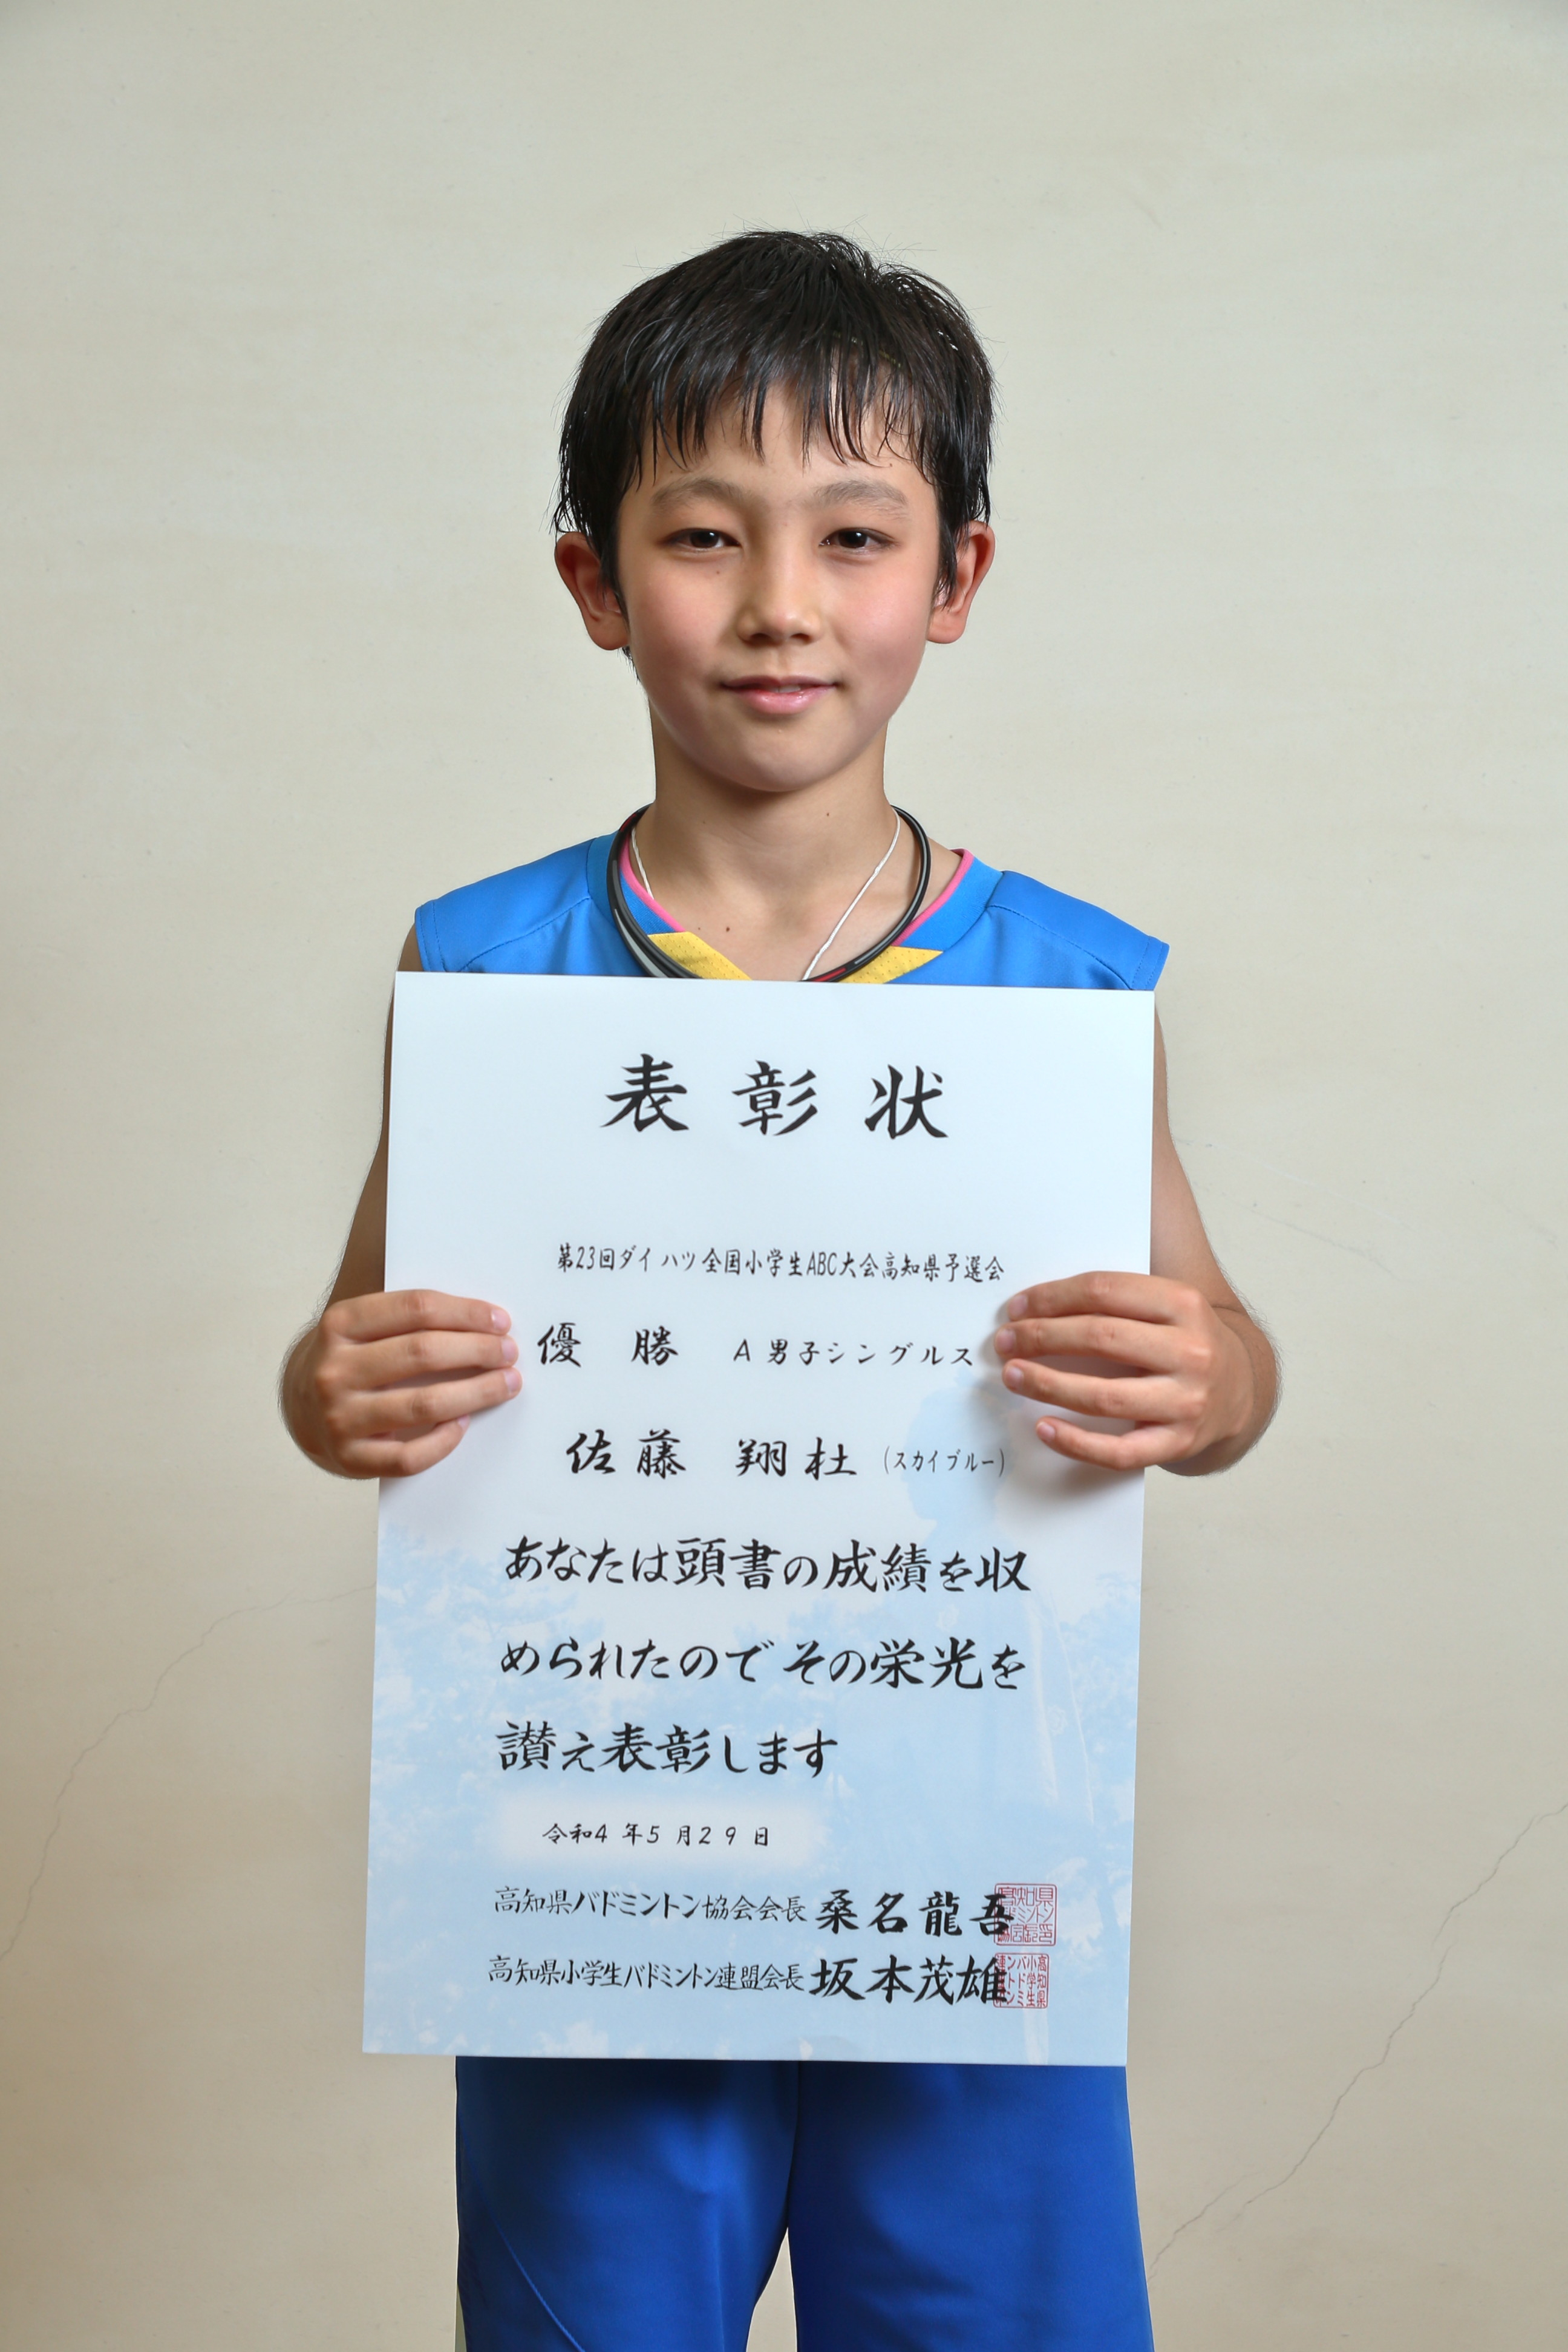 表彰状
第23回ダイハツ全国小学生ABC大会高知県予選会
優勝 A男子シングルス
佐藤 翔杜 (スカイブルー)
あなたは頭書の成績を収
められたのでその栄光を
讃え表彰します
令和4年5月29日
高知県バドミントン協会会長 桑名龍吾
高知県小学生バドミントン連盟会長 坂本茂雄